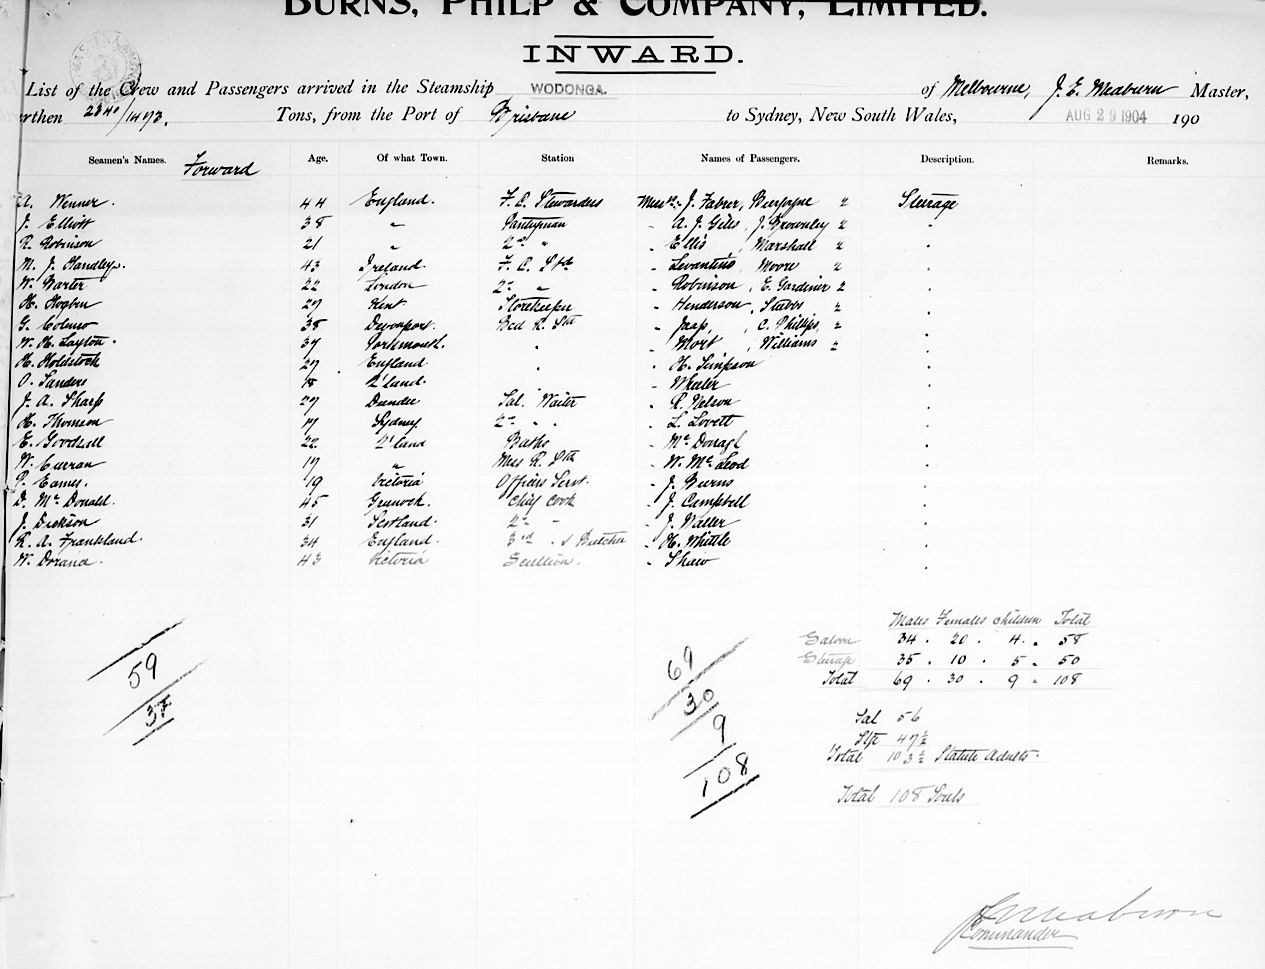 BURNS, PHILP & COMPANY, LIMITED.
INWARD.
List of the Crew and Passengers arrived in the Steamship WODONGA. of Melbourne, J. E. Meaburn Master,
rthen 2340/1473. Tons, from the Port of Brisbane to Sydney, New South Wales, AUG 29 1904 190
Seamen's Names. Forward Age. Of what Town. Station Names of Passengers. Description. Remarks.
A. Wenner. 44 England. F. C. Stewardess Messrs. J. Faber, Burgoyne 2 Steerage
J. Elliott 38 " Pantryman " A. J. Giles, J. Brownley 2 "
R. Robinson 21 " 2nd " " Ellis, Marshall 2 "
M. J. Handley. 43 Ireland F. C. Std " Levantius, Moore 2 "
W. Barter 22 London 2nd " " Robinson, E. Gardiner 2 "
H. Hogben 27 Kent Storekeeper " Henderson, Stubbs 2 "
G. Colmso 38 Devonport. Bed R. Std " Jaap, C. Phillips, 2 "
W. H. Layton. 37 Portsmouth. " " Mort, Williams 2 "
H. Holdstock 27 England " " H. Simpson "
O. Sanders 18 Q'land. " Wheeler "
J. A. Sharp 27 Dundee Sal. Waiter " R. Nelson "
H. Thomson 17 Sydney 2nd " " " L. Lovett "
E. Goodsall 22 Q'land Baths " McDonagh "
W. Curran 17 " Mess R. Std " W. McLeod "
P. Eames. 19 Victoria Officers Servt. " J. Burns "
D. McDonald. 45 Greenock. Chief Cook " J. Campbell "
J. Dickson 31 Scotland. 2nd " " J. Waller "
R. A. Frankland. 34 England. 3rd " & Butcher " H. Whittle "
W. Dorand. 43 Victoria Scullion. " Shaw "
Males Females Children Total
Saloon 34 . 20 . 4 . 58
Steerage 35 . 10 . 5 . 50
Total 69 . 30 . 9 . 108
59
37
69
30
9
108
Sal 56
Stge 47½
Total 103½ Statute Adults.
Total 108 Souls
J E Meaburn
Commander